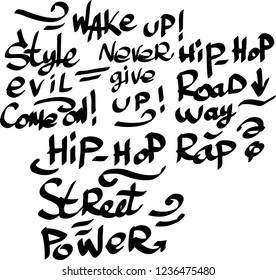 WAKE UP!
Style NEVER HiP-HoP
EViL give ROAD
COME ON! UP! WAY
HiP-HoP RAP
STREET
POWER
shutterstock.com · 1236475480